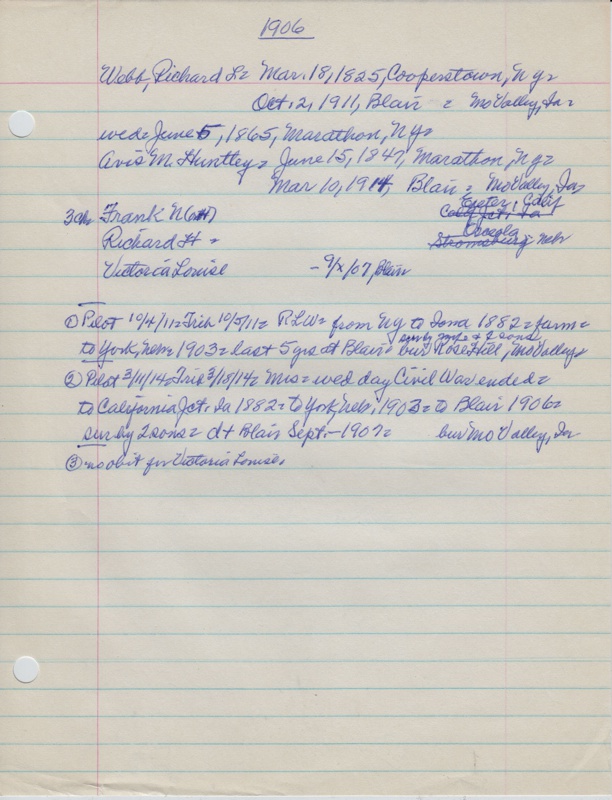 1906
Webb, Richard L = Mar. 18, 1825, Cooperstown, Ny =
Oct. 2, 1911, Blair = MoValley, Ia =
wed = June 5, 1865, Marathon, Ny =
Avis M. Huntley = June 15, 1847, Marathon, Ny =
Mar 10, 1914, Blair = MoValley, Ia =
3 ch = Frank N Exeter, Calif
Calif Jct, Ia
Richard H = Osceola
Stromsburg Nebr
Victoria Louise - 9/x/07, Blair
① Pilot 10/4/11 = Trib 10/5/11 = RLW = from Ny to Iowa 1882 = farm =
surv by wife & 2 sons
to York, Nebr 1903 = last 5 yrs at Blair = bur Rose Hill, MoValley =
② Pilot 3/11/14 = Trib 3/18/14 = Mrs = wed day Civil War ended =
to California Jct. Ia 1882 = to York, Nebr, 1903 = to Blair 1906 =
sur by 2 sons = dt Blair Sept. - 1907 = bur MoValley, Ia
③ no obit for Victoria Louise.